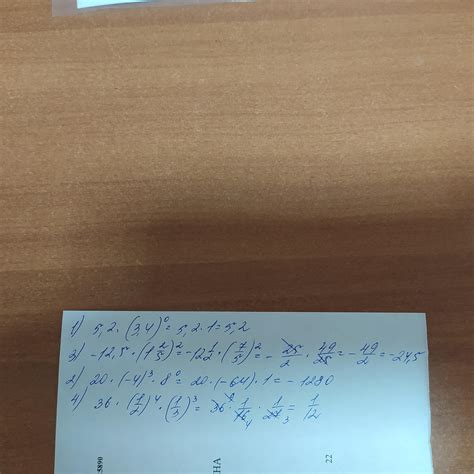 1) 5,2 · (3,4)⁰ = 5,2 · 1 = 5,2
3) -12,5 · (1 2/5)² = -12 1/2 · (7/5)² = - 25/2 · 49/25 = - 49/2 = -24,5
2) 20 · (-4)³ · 8⁰ = 20 · (-64) · 1 = - 1280
4) 36 · (1/2)⁴ · (1/3)³ = 36 · 1/16 · 1/27 = 1/12
:5890
НА
22